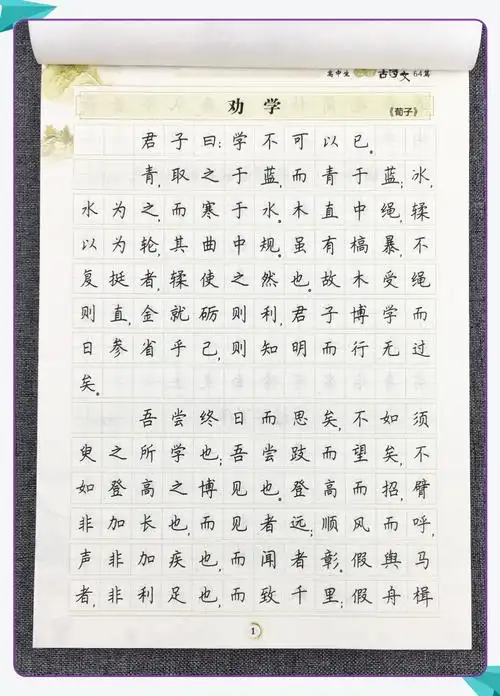 高中生 古诗文 64篇
劝学
《荀子》
君子曰：学不可以已。
青，取之于蓝，而青于蓝；冰，
水为之，而寒于水。木直中绳，𫐓
以为轮，其曲中规。虽有槁暴，不
复挺者，𫐓使之然也。故木受绳
则直，金就砺则利，君子博学而
日参省乎己，则知明而行无过
矣。
吾尝终日而思矣，不如须
臾之所学也；吾尝跂而望矣，不
如登高之博见也。登高而招，臂
非加长也，而见者远；顺风而呼，
声非加疾也，而闻者彰。假舆马
者，非利足也，而致千里；假舟楫
1